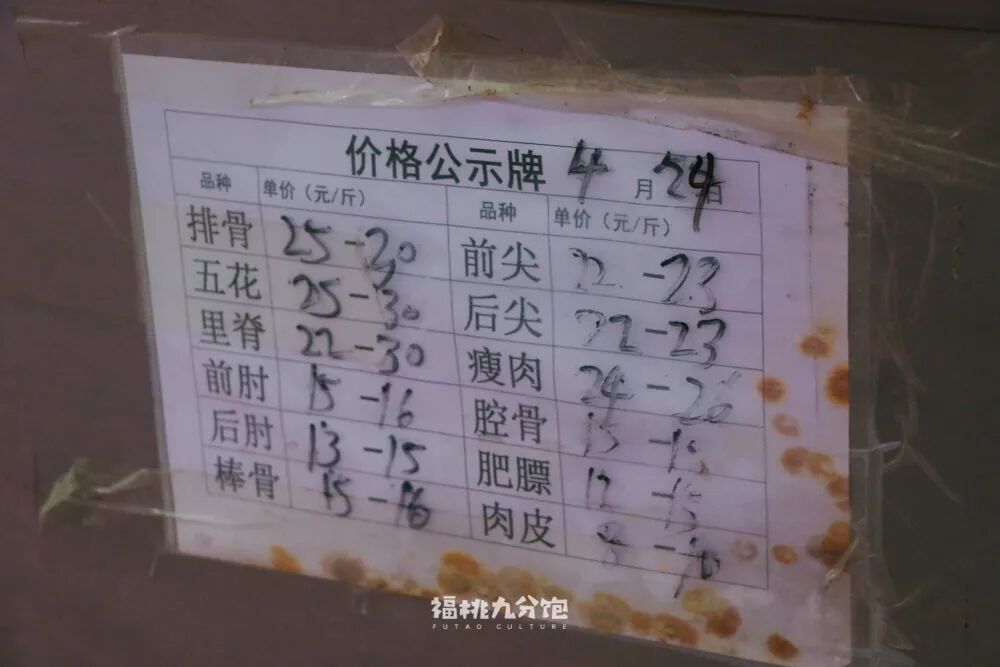 价格公示牌 4月24日
品种 单价（元/斤） 品种 单价（元/斤）
排骨 25-30 前尖 22-23
五花 25-30 后尖 22-23
里脊 22-30 瘦肉 24-26
前肘 15-16 腔骨
后肘 13-15 肥膘
棒骨 15-16 肉皮
福桃九分饱
FUTAO CULTURE